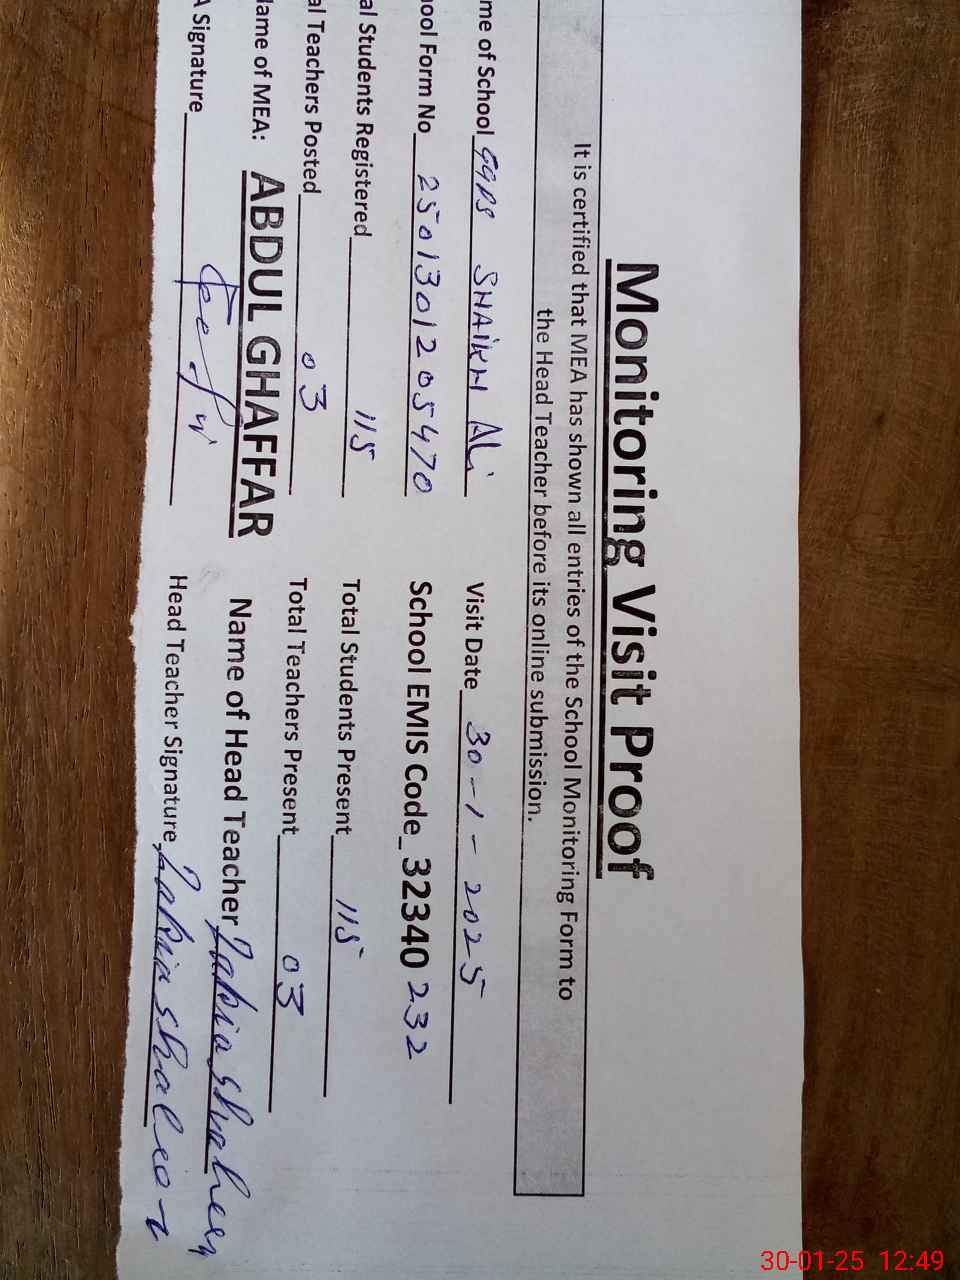 Monitoring Visit Proof
It is certified that MEA has shown all entries of the School Monitoring Form to
the Head Teacher before its online submission.
me of School GGPS SHAIKH ALi Visit Date 30-1-2025
ool Form No 2501301205470 School EMIS Code_32340232
al Students Registered 115 Total Students Present 115
al Teachers Posted 03 Total Teachers Present 03
Name of MEA: ABDUL GHAFFAR Name of Head Teacher Zakia Shaheen
A Signature Head Teacher Signature Zakia Shaheen
30-01-25 12:49